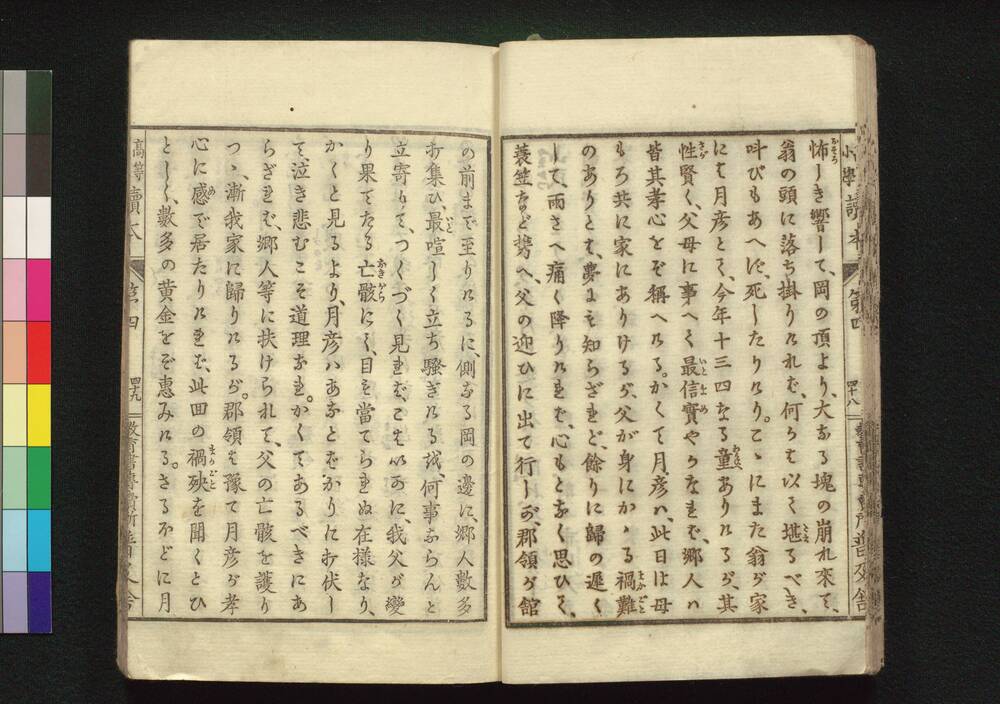 小學讀本 第四 四十八 普及舍
怖しき響して、岡の頂より、大なる塊の崩れ來て、
翁の頭に落ち掛りければ、何かは以て堪るべき、
叫びもあへず、死したりけり。こゝにまた翁が家
には月彦とて、今年十三四なる童ありけるが、其
性賢く、父母に事へて最信實やかなれば、郷人ハ
皆其孝心をぞ稱へける。かくて月彦ハ、此日は母
もろ共に家にありけるが、父が身にかゝる禍難
のありとは、夢にも知らざれど、餘りに歸の遲く
して、雨さへ痛く降りければ、心もとなく思ひて、
蓑笠など携へ、父の迎ひに出て行しが、郡領が館
の前まで至りけるに、側なる岡の邊に、郷人數多
打集ひ、最喧しく立ち騷ぎける故、何事ならんと
立寄りて、つくづく見れば、こはいかに、我父が變
り果てたる亡骸にて、目も當てられぬ在樣なり、
かくと見るより、月彦ハあなとばかりに打伏し
て、泣き悲むこそ道理なれ。かくてあるべきにあ
らざれば、郷人等に扶けられて、父の亡骸を護り
つゝ、漸我家に歸りけるが。郡領も豫て月彦が孝
心に感で居たりければ、此回の禍殃を聞くとひ
としく、數多の黄金をぞ惠みける。さるほどに月
高等讀本 第四 四十九 教育書專賣所 普及舍